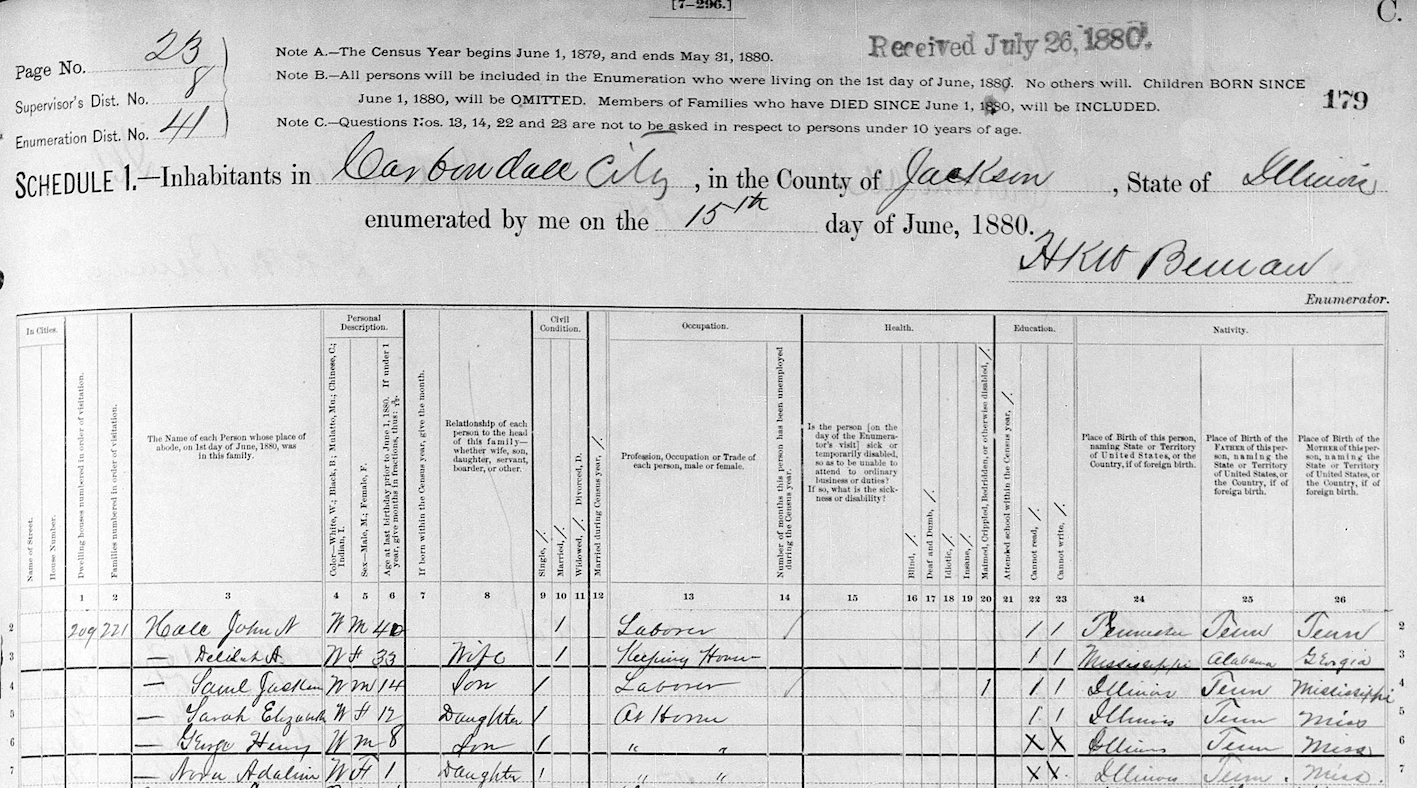 [7-296.]
C.
Page No. 23
Supervisor's Dist. No. 8
Enumeration Dist. No. 41
Note A.—The Census Year begins June 1, 1879, and ends May 31, 1880.
Received July 26, 1880.
Note B.—All persons will be included in the Enumeration who were living on the 1st day of June, 1880. No others will. Children BORN SINCE
June 1, 1880, will be OMITTED. Members of Families who have DIED SINCE June 1, 1880, will be INCLUDED.
179
Note C.—Questions Nos. 13, 14, 22 and 23 are not to be asked in respect to persons under 10 years of age.
SCHEDULE 1.—Inhabitants in Carbondale City, in the County of Jackson, State of Illinois
enumerated by me on the 15th day of June, 1880.
HKW Beman
Enumerator.
In Cities.
Name of Street.
House Number.
Dwelling houses numbered in order of visitation.
Families numbered in order of visitation.
The Name of each Person whose place of
abode, on 1st day of June, 1880, was
in this family.
Personal
Description.
Color—White, W.; Black, B.; Mulatto, Mu.; Chinese, C.;
Indian, I.
Sex—Male, M.; Female, F.
Age at last birthday prior to June 1, 1880. If under 1
year, give months in fractions, thus:
If born within the Census year, give the month.
Relationship of each
person to the head
of this family—
whether wife, son,
daughter, servant,
boarder, or other.
Civil
Condition.
Single, /.
Married, /.
Widowed, /. Divorced, D.
Married during Census year, /.
Occupation.
Profession, Occupation or Trade of
each person, male or female.
Number of months this person has been unemployed
during the Census year.
Health.
Is the person [on the
day of the Enumera-
tor's visit] sick or
temporarily disabled,
so as to be unable to
attend to ordinary
business or duties?
If so, what is the sick-
ness or disability?
Blind, /.
Deaf and Dumb, /.
Idiotic, /.
Insane, /.
Maimed, Crippled, Bedridden, or otherwise disabled, /.
Education.
Attended school within the Census year, /.
Cannot read, /.
Cannot write, /.
Nativity.
Place of Birth of this person,
naming State or Territory
of United States, or the
Country, if of foreign birth.
Place of Birth of the
FATHER of this per-
son, naming the
State or Territory
of United States, or
the Country, if of
foreign birth.
Place of Birth of the
MOTHER of this per-
son, naming the
State or Territory
of United States, or
the Country, if of
foreign birth.
1 2 3 4 5 6 7 8 9 10 11 12 13 14 15 16 17 18 19 20 21 22 23 24 25 26
2 209 221 John N W M 40 / Laborer / / / Tenn Tenn 2
3 — Delilah A. W F 33 Wife / Keeping House / / Mississippi Alabama Georgia 3
4 — Saml Jackson W M 14 Son / Laborer / / / / Illinois Tenn Mississippi 4
5 — Sarah Elizabeth W F 12 Daughter / At Home / / Illinois Tenn Miss 5
6 — George Henry W M 8 Son / " " X X Illinois Tenn Miss 6
7 — Nora Adaline W F 1 Daughter / " " X X Illinois Tenn. Miss. 7